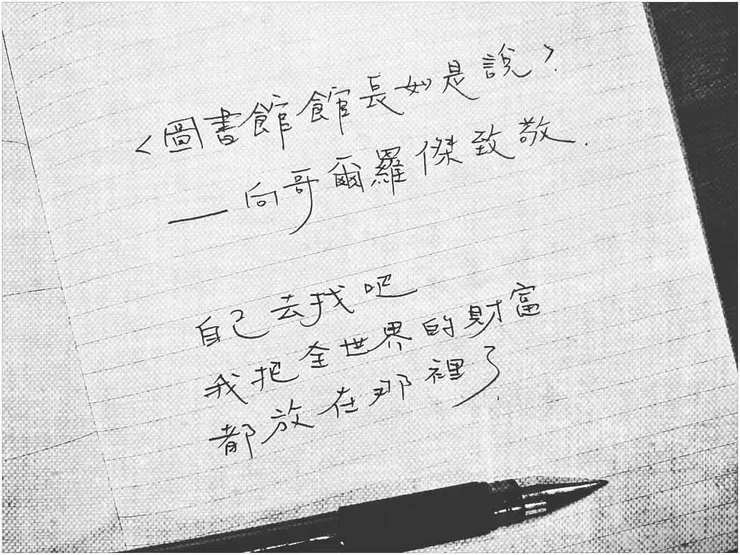 <圖書館館長如是說>
——向哥爾羅傑致敬.
自己去找吧
我把全世界的財富
都放在那裡了